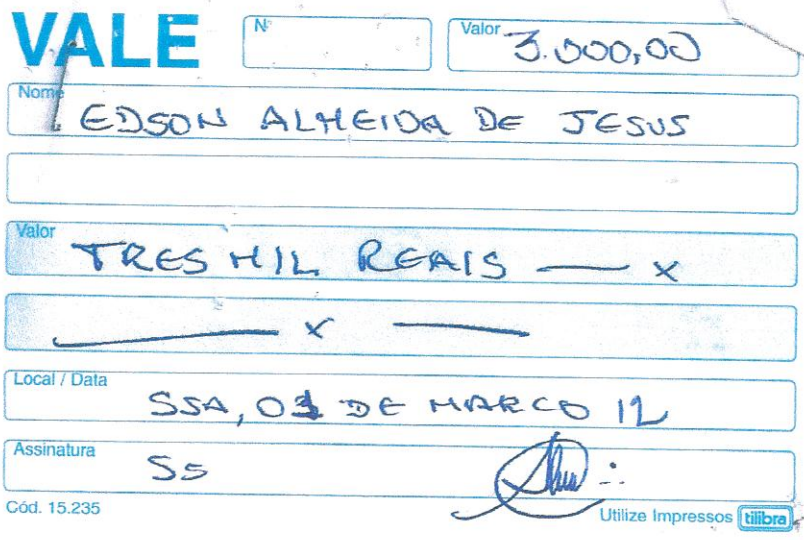 VALE Nº Valor 3.000,00
Nome EDSON ALMEIDA DE JESUS
Valor TRES MIL REAIS — x
— x —
Local / Data SSA, 01 DE MARCO 12
Assinatura Ss
Cód. 15.235 Utilize Impressos tilibra